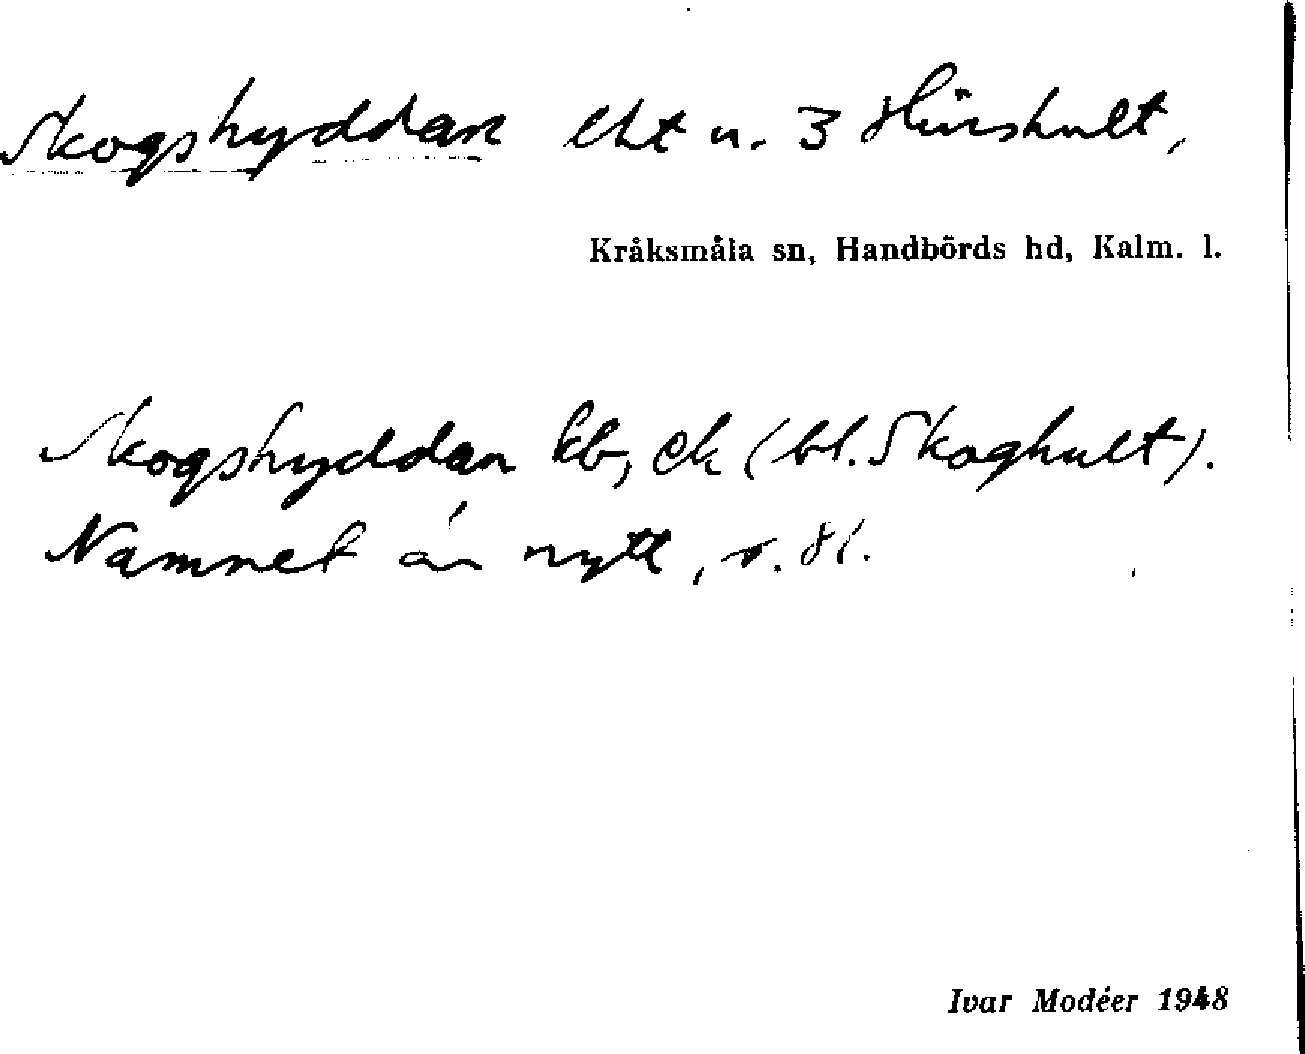 Skogshyddan lht u. 3 Hinshult,
Kråksmåla sn, Handbörds hd, Kalm. l.
Skogshyddan kb, ek (bl. Skoghult).
Namnet är nytt, s. 81.
Ivar Modéer 1948